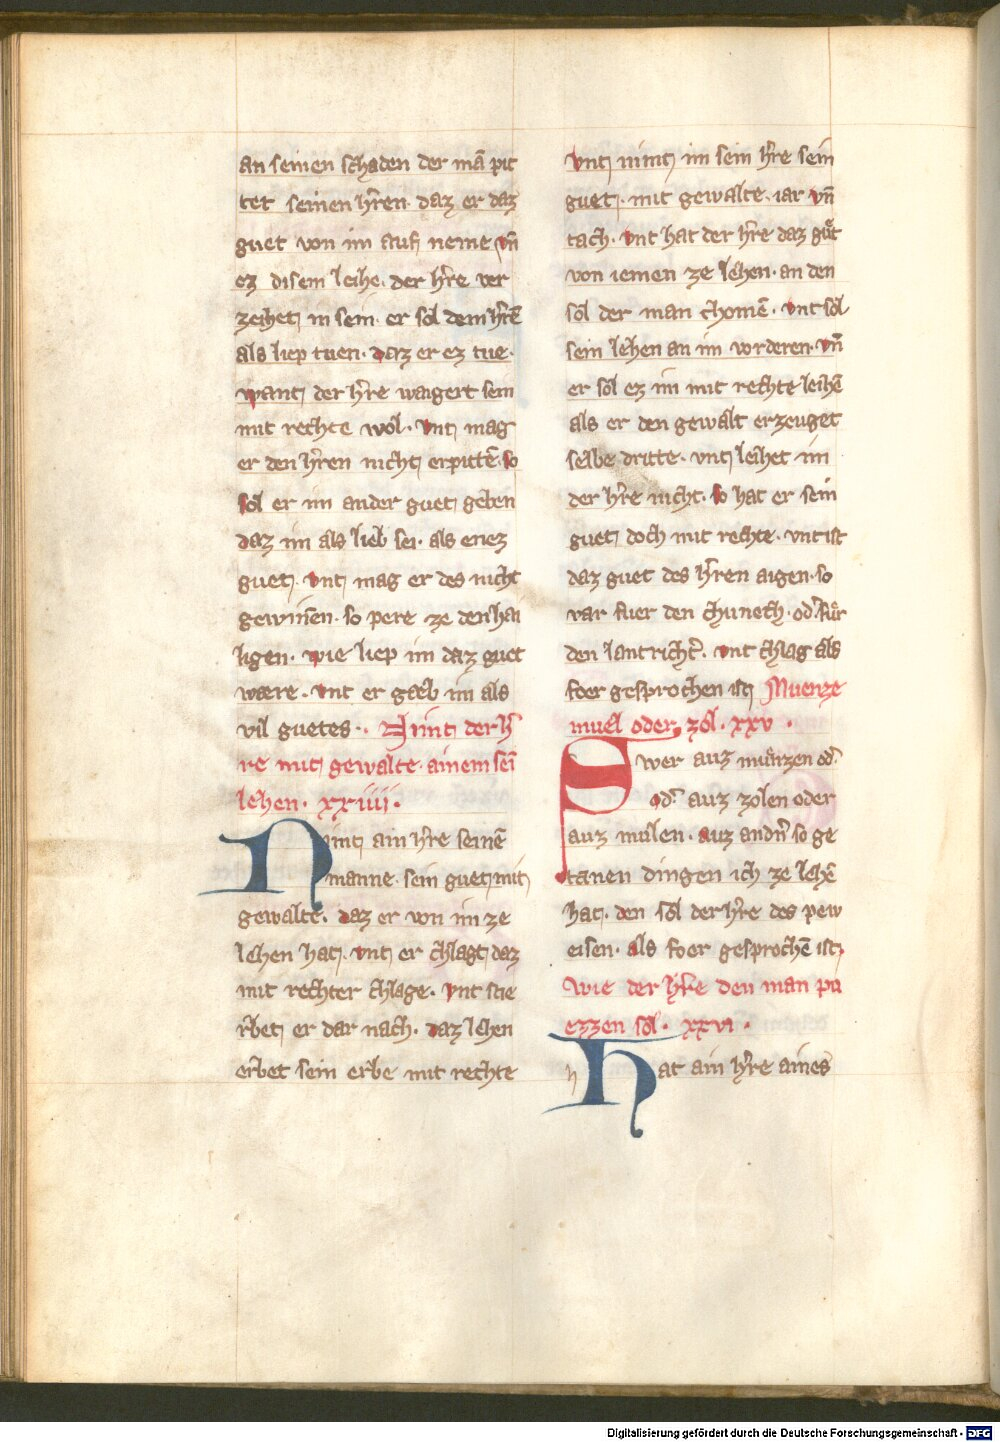 an seinen schaden der mā pit
tet seinen hr̄en. daz er daz
guet von im auf neme vn̄
ez disem leihe. der hr̄e ver
zeihet in sein. er sol dem hr̄ē
als liep tuen. daz er ez tue.
want der hr̄e waigert sein
mit rechte wol. vnt mag
er den hr̄en nicht erpittē. so
sol er im ander guet geben
daz im als lieb sei. als enez
guet. vnt mag er des nicht
gewinnen. so pere ze den hai
ligen. wie liep im daz guet
wære. vnt er gæb im als
vil guetes.. Nimt der h̄
re mit gewalte. ainem sei
lehen. xxiiii.
Nimt ain hr̄e seinē
manne. sein guet mit
gewalte. daz er von im ze
lehen hat. vnt er chlagt daz
mit rechter chlage. vnt stie
rbet er dar nach. daz lehen
erbet sein erbe mit rechte
vnt nimt im sein hr̄e sein
guet. mit gewalte. iar vn̄
tach. vnt hat der hr̄e daz guͦt
von iemen ze lehen. an den
sol der man chomē. vnt sol
sein lehen an im vorderen. vn̄
er sol ez im mit rechte leihē
als er den gewalt erzeuget
selbe dritte. vnt leihet im
der hr̄e nicht. so hat er sein
guet doch mit rechte. vnt ist
daz guet des hr̄en aigen. so
var fuer den chunech. od' fuͤr
den lantricht'. vnt chlag als
foer gesprochen ist Muenze
muel oder zol. xxv.
Swer auz muͤnzen od'
od' auz zolen oder
auz mulen. auz andn̄ so ge
tanen dingen ich ze lehē
hat. den sol der hr̄e des pew
eisen. als foer gesprochē ist.
Wie der hr̄e den man pu
ezzen sol. xxvi.
h Hat ain hr̄e aines
Digitalisierung gefördert durch die Deutsche Forschungsgemeinschaft - DFG